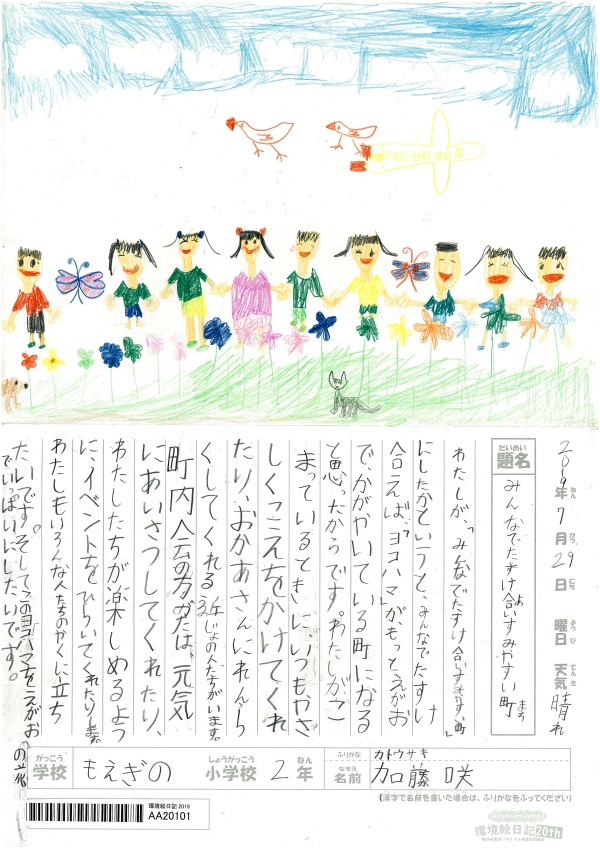 2019年ねん7月がつ29日にち 曜日ようび 天気てんき晴れ
だいめい
題名
みんなでたすけ合いすみやすい町
わたしが、「みんなでたすけ合いすみやすい町」
にしたかというと、みんなでたすけ
合えば、「ヨコハマ」が、もっと、えがお
で、かがやいている町になる
と思ったからです。わたしがこ
まっているときに、いつもやさ
しくこえをかけてくれ
たり、おかあさんにれんら
くしてくれる近じょの人たちがいます。
町内会の方がたは、元気
にあいさつしてくれたり、
わたしたちが楽しめるよう
に、イベントをひらいてくれたりします。
わたしもいろんな人たちのやくに立ち
たいです。そしてこのヨコハマをえがおの花
でいっぱいにしたいです。
がっこう
学校
もえぎの
しょうがっこう
小学校
2
ねん
年
ふりがな
カトウサキ
なまえ
名前
加藤 咲
(漢字で名前を書いた場合は、ふりがなをふってください)
環境絵日記 2019
AA20101
環境絵日記20th